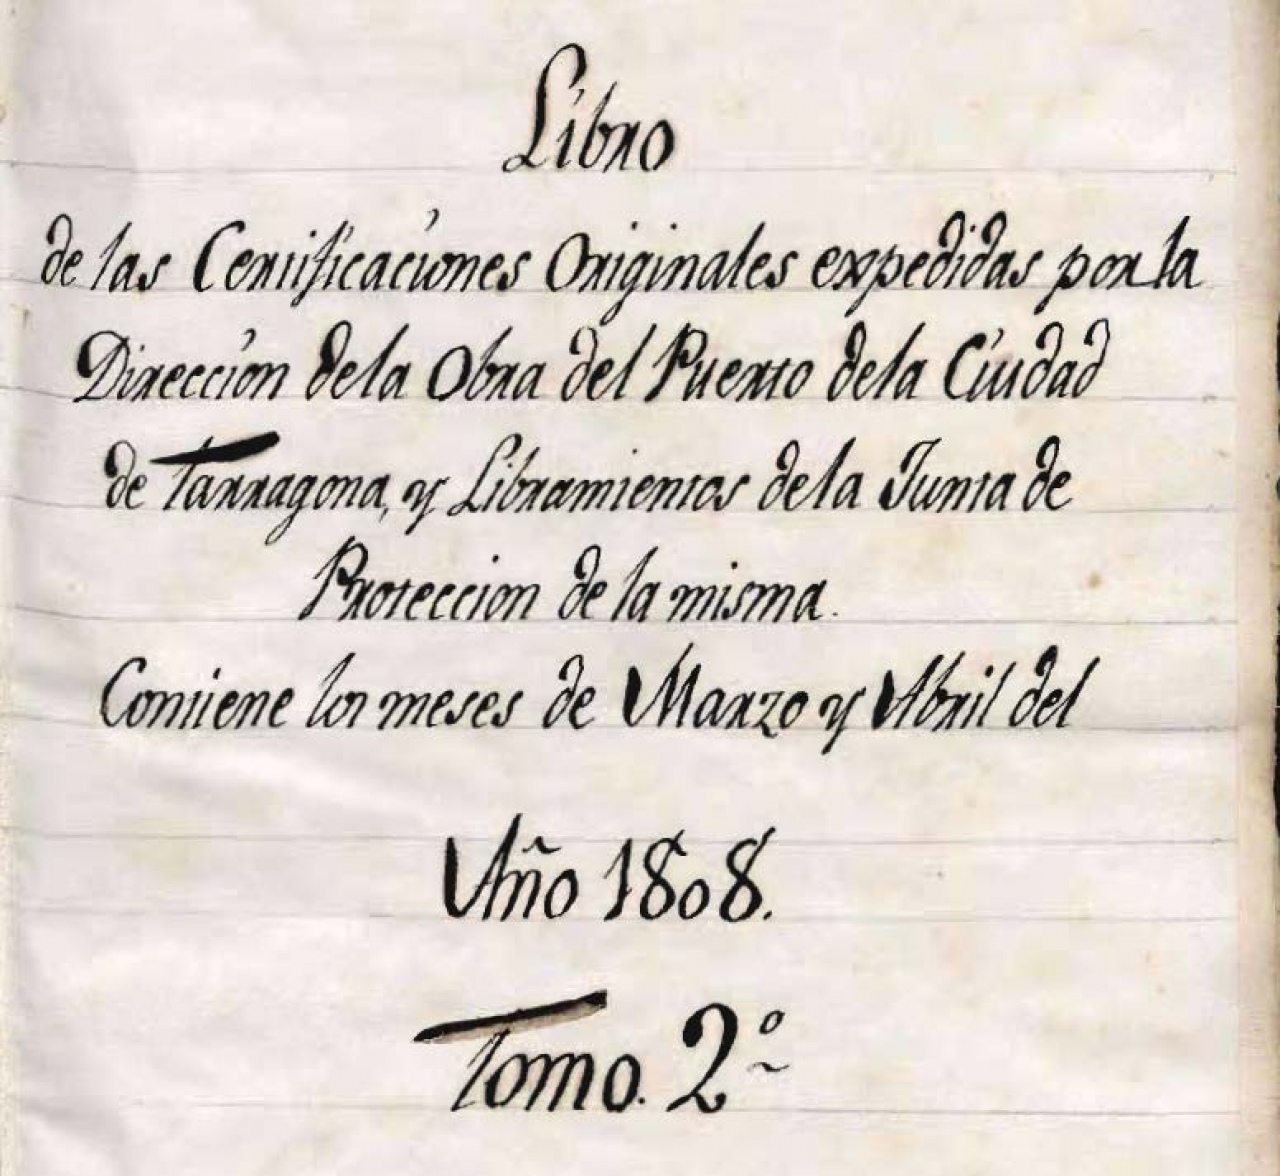 Libro
de las Certificaciones Originales expedidas por la
Dirección de la Obra del Puerto de la Ciudad
de Tarragona, y Libramientos de la Junta de
Proteccion de la misma.
Contiene los meses de Marzo y Abril del
Año 1808.
Tomo. 2º